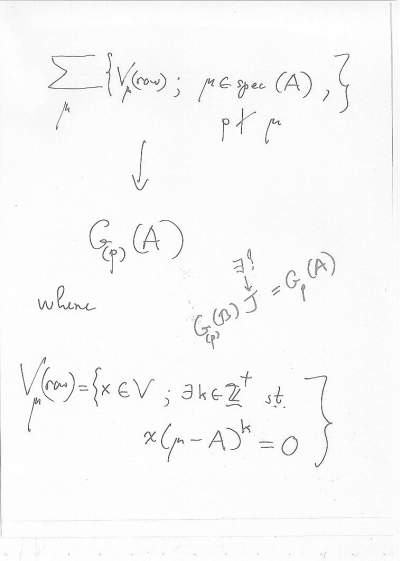 ∑_μ { V_μ(row) ; μ ∈ spec(A) , }
p ∤ μ
↓
G_(p)(A)
where
∃?
↓
G_(p)(B) J = G_p(A)
V_μ(row) = { x ∈ V ; ∃k ∈ ℤ⁺ st.
x(μ − A)^k = 0 }